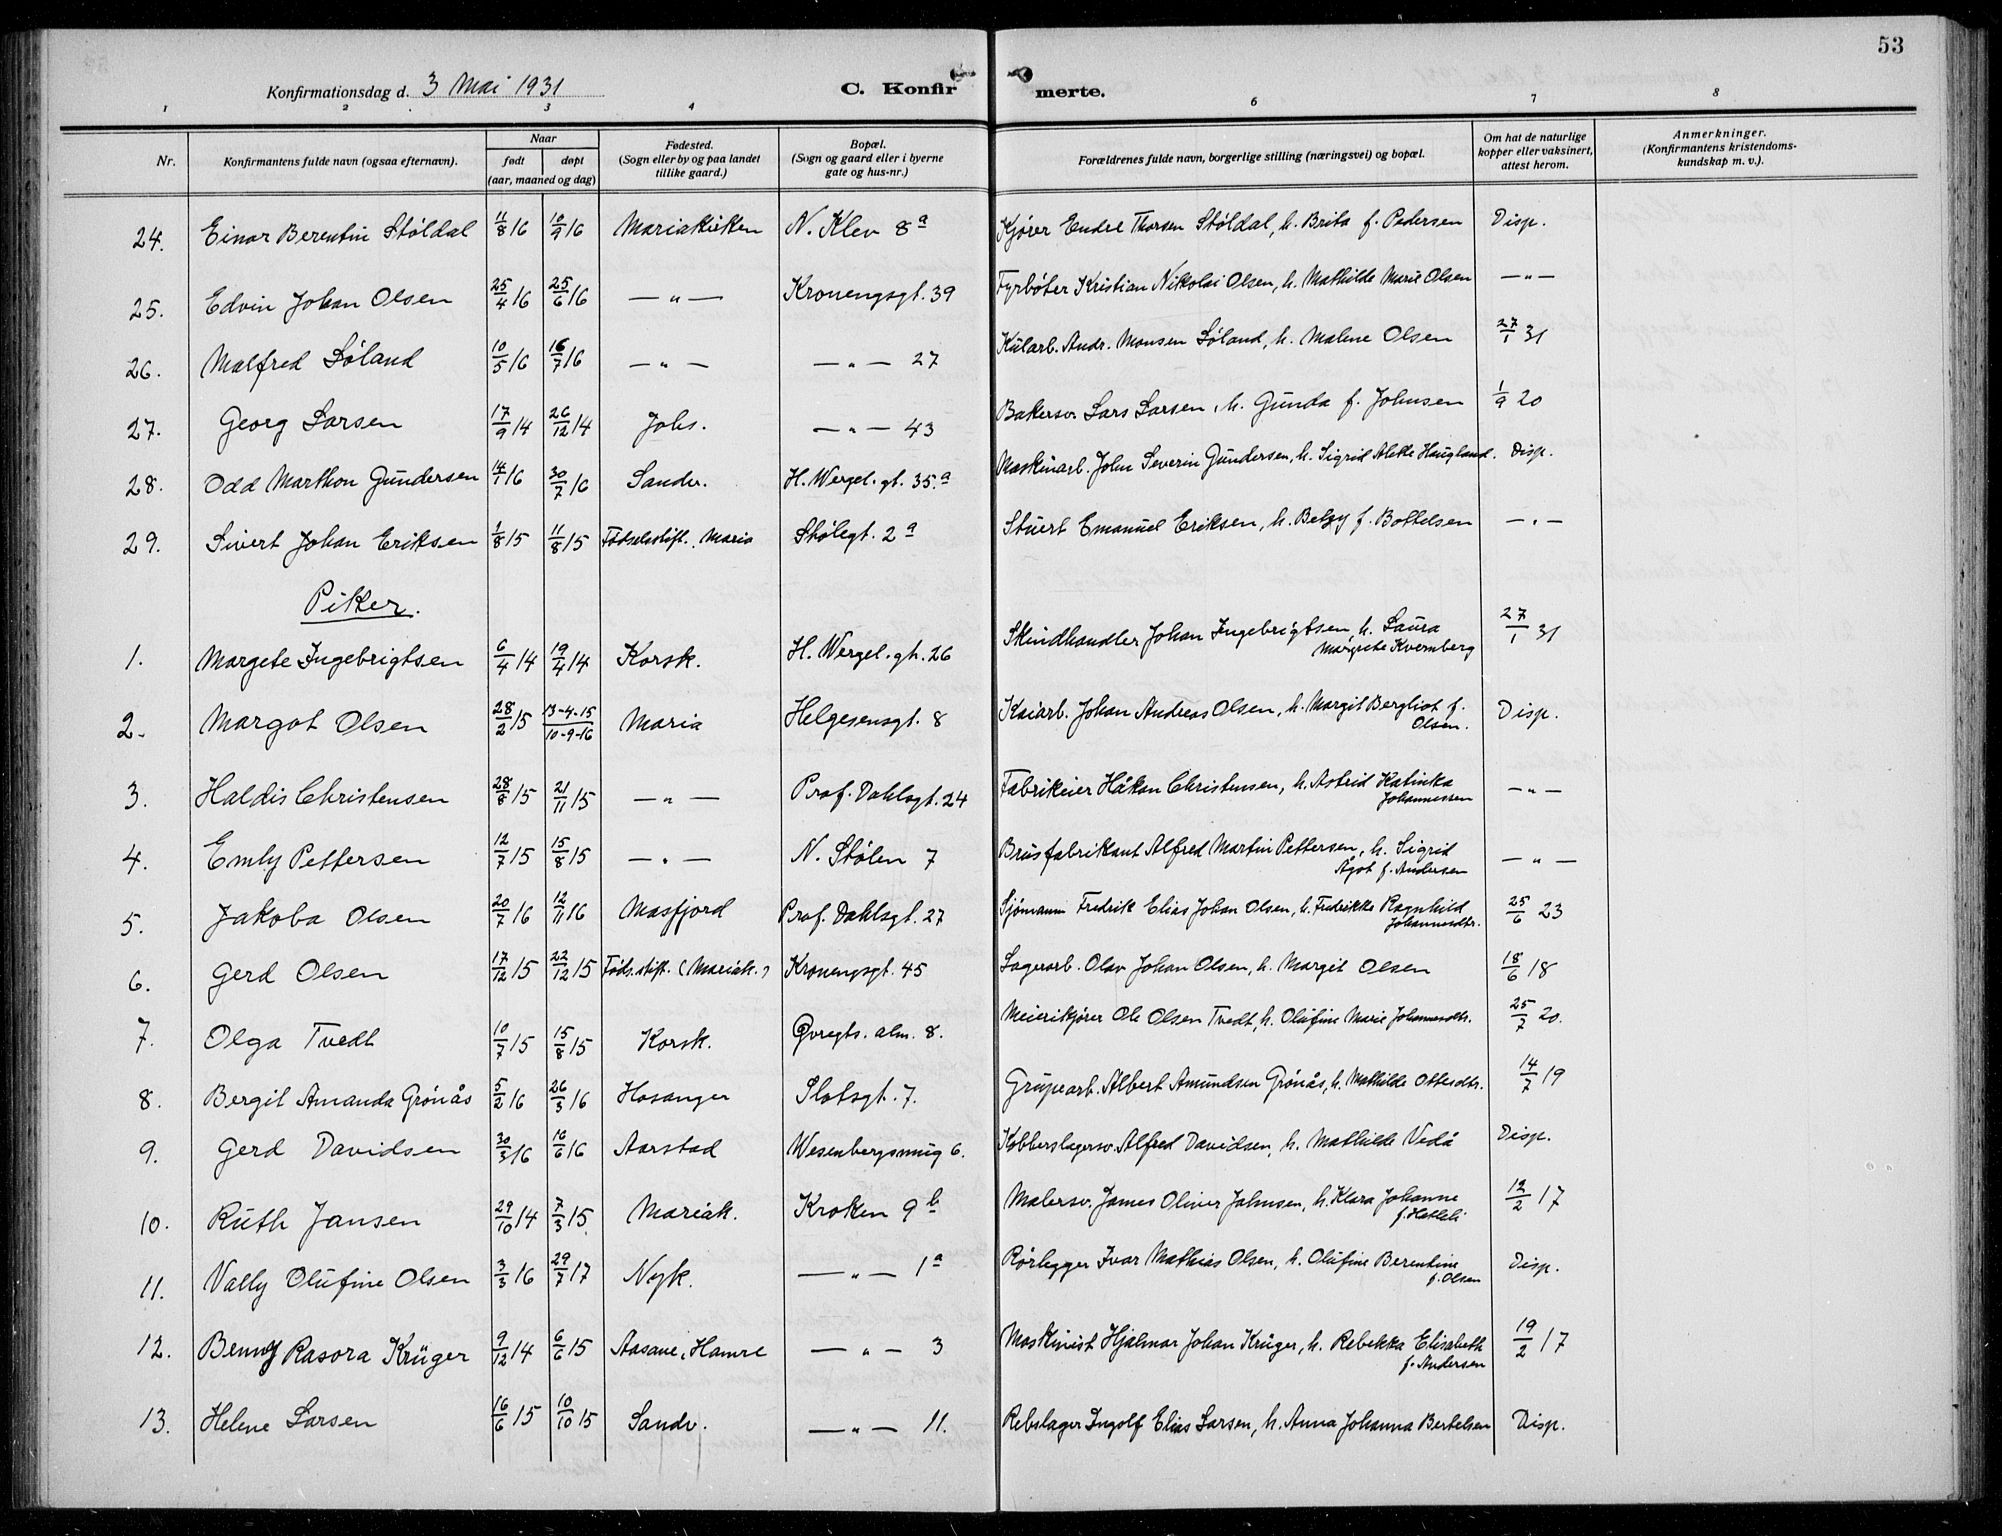 53
Konfirmationsdag d. 3 Mai 1931 C. Konfirmerte.
1 2 3 4 5 6 7 8
Nr. Konfirmantens fulde navn (ogsaa efternavn). Naar født døpt (aar, maaned og dag) Fødested. (Sogn eller by og paa landet tillike gaard.) Bopæl. (Sogn og gaard eller i byerne gate og hus-nr.) Forældrenes fulde navn, borgerlige stilling (næringsvei) og bopæl. Om hat de naturlige kopper eller vaksinert, attest herom. Anmerkninger. (Konfirmantens kristendomskundskap m. v.).
24. Einar Berentin Støldal 11/8 16 10/9 16 Mariakirken N. Klev 8a Kjører Endre Thorsen Støldal, h. Brita f. Pedersen Disp.
25. Edvin Johan Olsen 25/4 16 25/6 16 — " — Kronengsgt. 39 Fyrbøter Kristian Nikolai Olsen, h. Mathilde Marie Olsen — " —
26. Malfred Søland 10/5 16 16/7 16 — " — — " — 27 Kularb. Andr. Monsen Søland, h. Malene Olsen 27/1 31
27. Georg Larsen 17/9 14 26/12 14 Johs. — " — 43 Bakersv. Lars Larsen, h. Gunda f. Johnsen 1/9 20
28. Odd Marthon Gundersen 14/1 16 30/7 16 Sandv. H. Wergel. gt. 35.a Maskinarb. John Severin Gundersen, h. Sigrid Alette Haugland. Disp.
29. Sivert Johan Eriksen 1/8 15 11/8 15 Fødselsstift. Maria Stølegt. 2a Stuert Emanuel Eriksen, h. Betzy f. Bottelsen — " —
Piker.
1. Margete Ingebrigtsen 6/4 14 19/4 14 Korsk. H. Wergel. gt. 26 Skindhandler Johan Ingebrigtsen, h. Laura Margrete Kvernberg 27/1 31
2. Margot Olsen 28/2 15 13-4-15 10-9-16 Maria Helgesensgt. 8 Kaiarb. Johan Andreas Olsen, h. Margit Bergliot f. Olsen. Disp.
3. Haldis Christensen 28/8 15 21/11 15 — " — Prof. Dahlsgt. 24 Fabrikeier Håkan Christensen, h. Astrid Katinka Johannessen — " —
4. Emly Pettersen 12/7 15 15/8 15 — " — N. Stølen 7 Brusfabrikant Alfred Martin Pettersen, h. Sigrid Ågot f. Andersen — " —
5. Jakoba Olsen 20/7 16 12/11 16 Masfjord Prof. Dahlsgt. 27 Sjømann Fredrik Elias Johan Olsen, h. Fredrikke Ragnhild Johannesdtr. 25/6 23
6. Gerd Olsen 17/12 15 22/12 15 Føds.stift. (Mariak.) Kronengsgt. 45 Lagerarb. Olav Johan Olsen, h. Margit Olsen 18/6 18
7. Olga Tvedt 10/7 15 15/8 15 Korsk. Øvregts. alm. 8. Meierikjører Ole Olsen Tvedt, h. Olufine Marie Johannesdtr. 25/7 20.
8. Bergit Amanda Grønås 5/2 16 26/3 16 Hosanger Slotsgt. 7. Grupearb. Albert Amundsen Grønås, h. Mathilde Ottesdtr. 14/7 19
9. Gerd Davidsen 30/3 16 16/6 16 Aarstad Wesenbergsmug 6. Kobberslagersv. Alfred Davidsen, h. Mathilde Vedå Disp.
10. Ruth Jansen 29/10 14 7/3 15 Mariak. Kroken 9b Malersv. James Oliver Jahnsen, h. Klara Johanne f. Hetleli 12/2 17
11. Vally Olufine Olsen 3/3 16 29/7 17 Nyk. — " — 1a Rørlegger Ivar Mathias Olsen, h. Olufine Berentine f. Olsen Disp.
12. Benny Rasora Krüger 9/12 14 6/6 15 Aasane, Hamre — " — 3 Maskinist Hjalmar Johan Krüger, h. Rebekka Elisabeth f. Andersen 19/2 17
13. Helene Larsen 16/6 15 10/10 15 Sandv. — " — 11. Rebslager Ingolf Elias Larsen, h. Anna Johanna Bertelsen Disp.